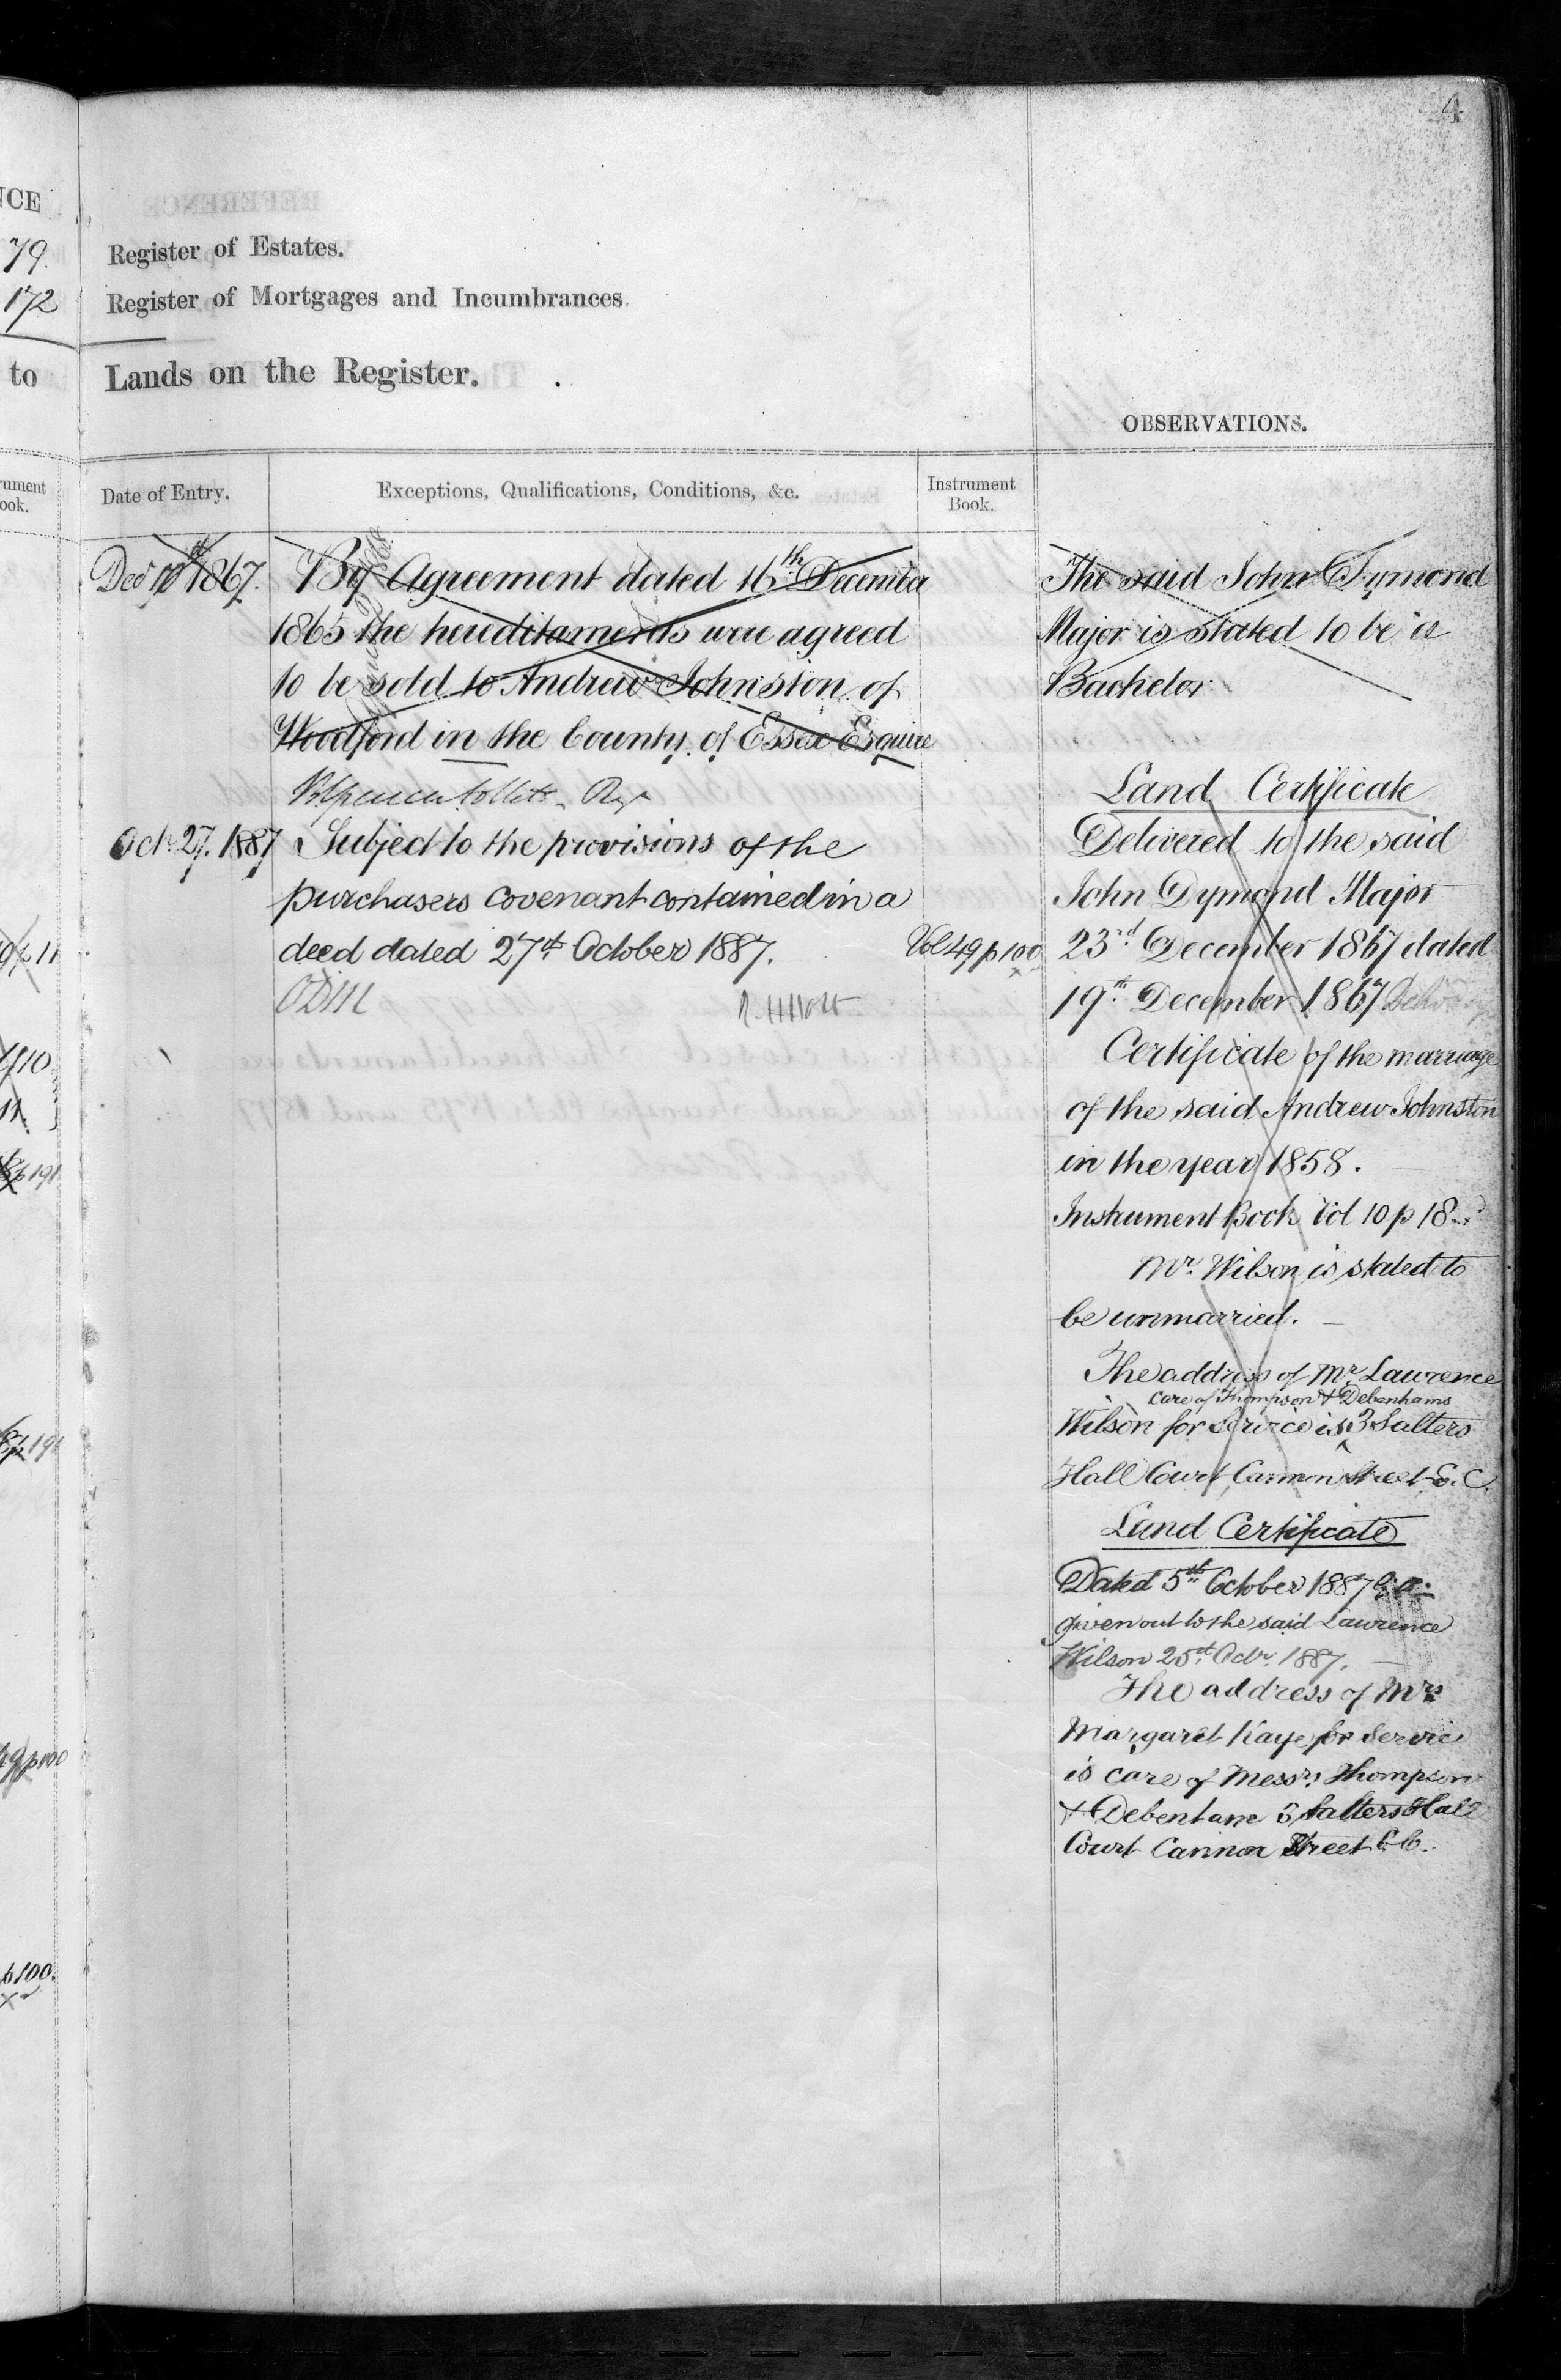 4
NCE
79.
172
to
Register of Estates.
Register of Mortgages and Incumbrances.
Lands on the Register.
OBSERVATIONS.
Date of Entry.
Exceptions, Qualifications, Conditions, &c.
Instrument
Book.
1867.
By Agreement dated 16th December
1865 the hereditaments were agreed
to be sold to Andrew Johnston of
Woodford in the County of Essex Esquire
Oct. 27. 1887
Subject to the provisions of the
purchasers covenant contained in a
deed dated 27th October 1887.
Vol 49 p 100
The said John Dymond
Major is stated to be a
Bachelor
Land Certificate
Delivered to the said
John Dymond Major
23rd December 1867 dated
19th December 1867
Certificate of the marriage
of the said Andrew Johnston
in the year 1858.
Instrument Book Vol 10 p 18
Mr. Wilson is stated to
be unmarried.
The address of Mr. Lawrence
care of Thompson & Debenhams
Wilson for Service is 3 Salters
Hall Court Cannon Street E.C.
Land Certificate
Dated 5th October 1887
given out to the said Lawrence
Wilson 25th Octr. 1887.
The address of Mrs
Margaret Kaye for Service
is care of Messrs Thompson
& Debenham 3 Salters Hall
Court Cannon Street E.C.